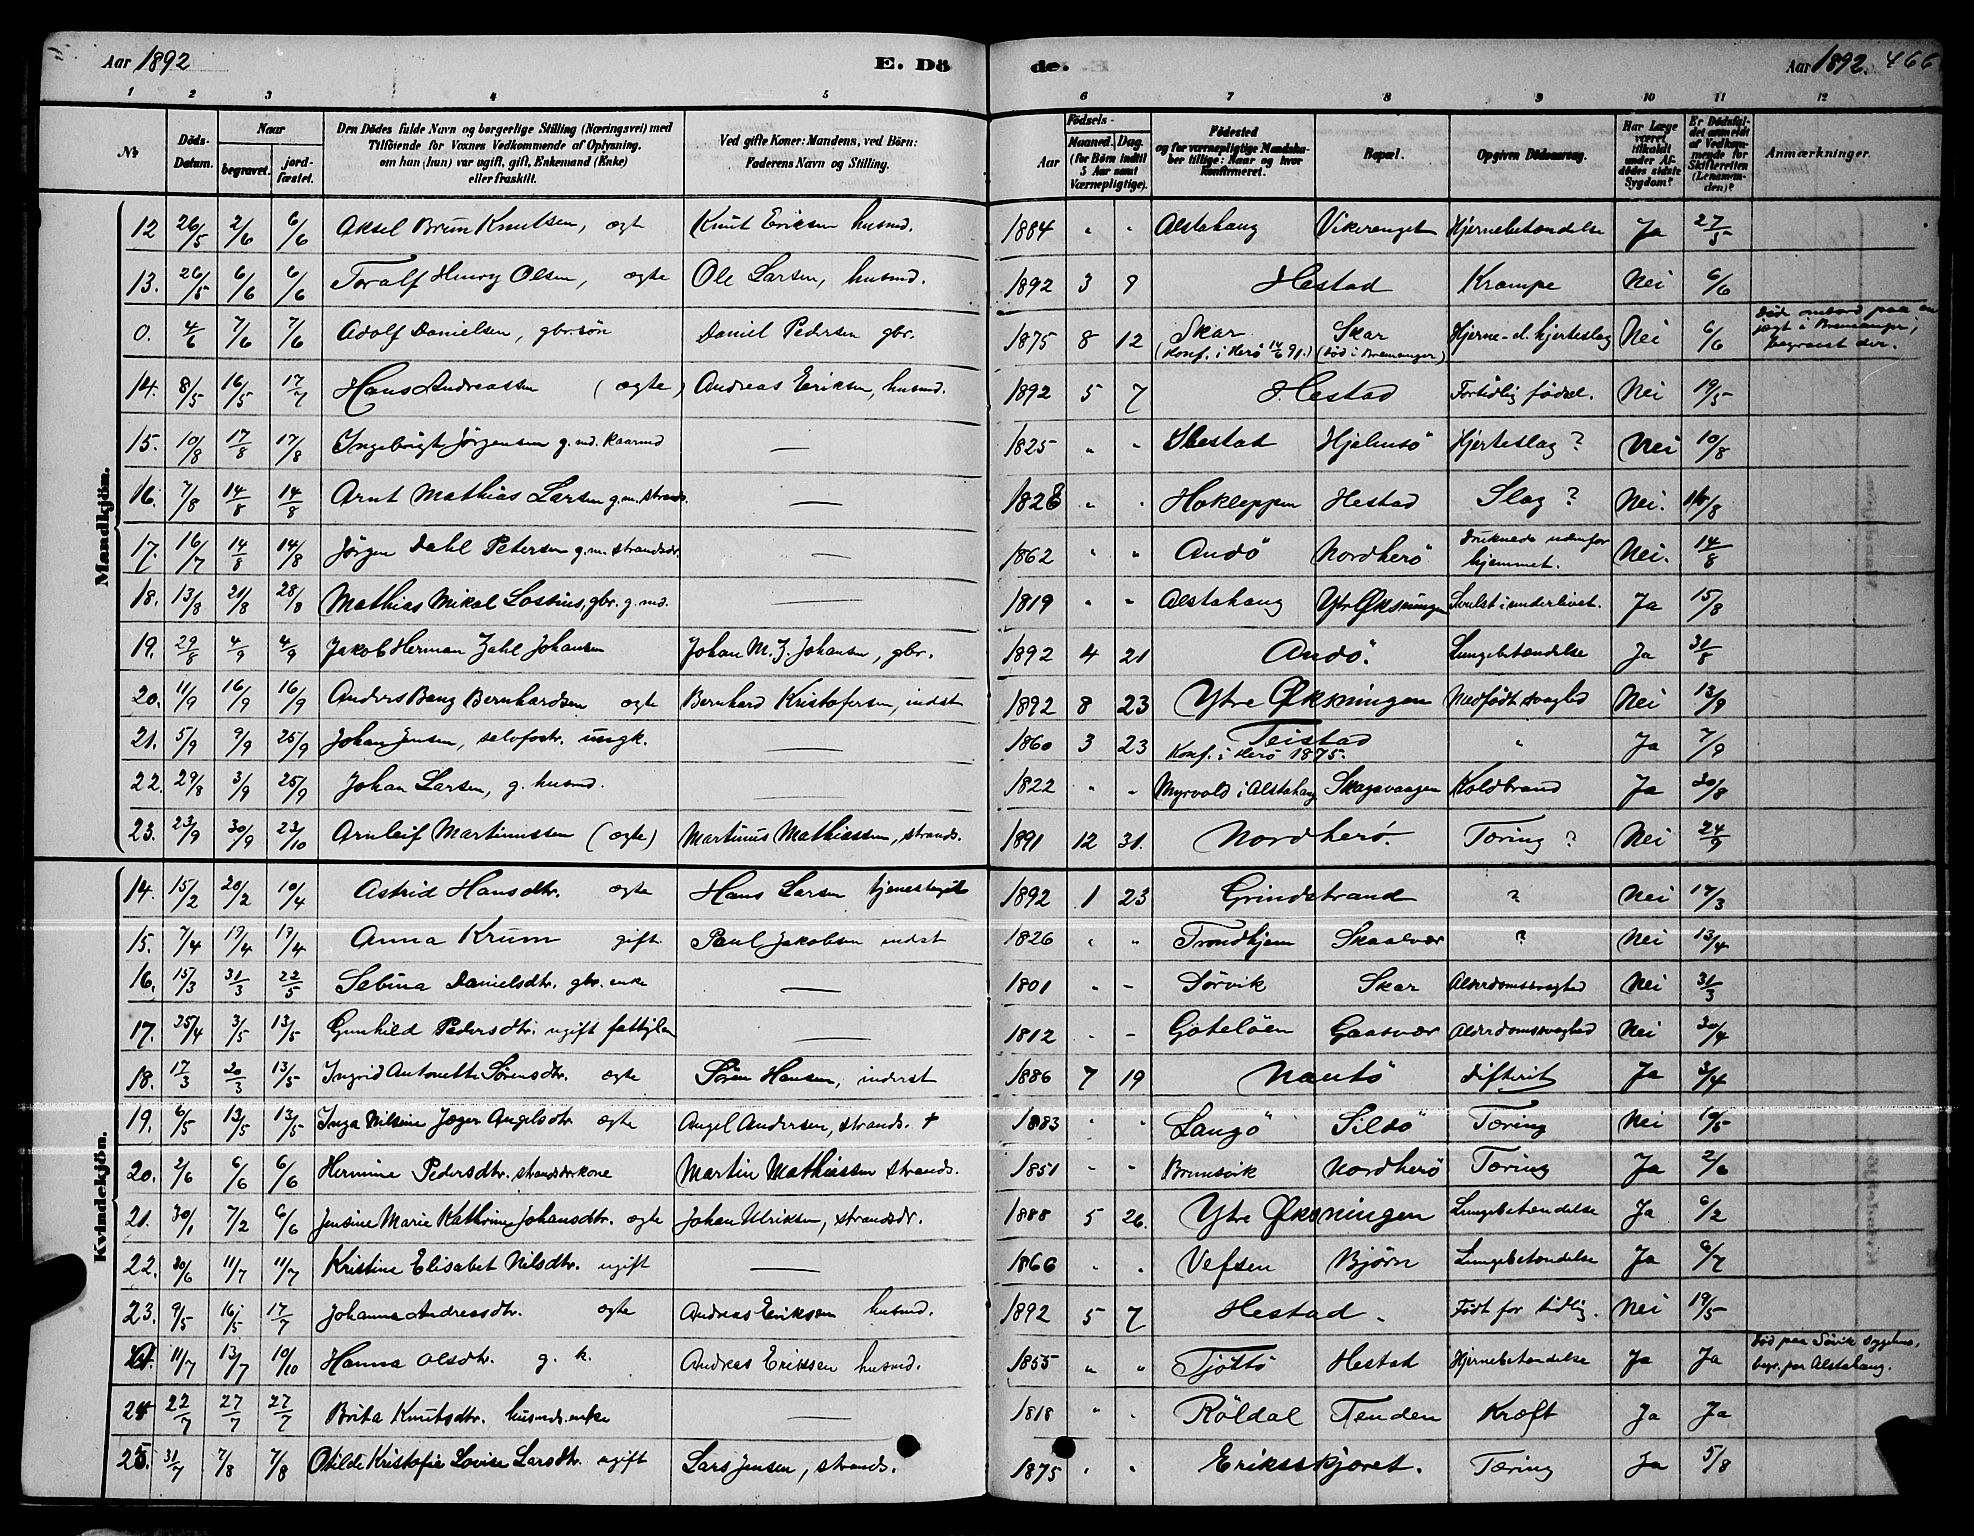 Aar 1892 E. Dö de. Aar 1892. 466
1 2 3 4 5 6 7 8 9 10 11 12
No Döds-Datum. Naar begravet. jordfæstet. Den Dödes fulde Navn og borgerlige Stilling (Næringsvei) med Tilföiende for Voxnes Vedkommende af Oplysning, om han (hun) var ugift, gift, Enkemand (Enke) eller fraskilt. Ved gifte Koner: Mandens, ved Börn: Faderens Navn og Stilling. Födsels- Aar Maaned. Dag. (for Börn indtil 5 Aar samt Værnepligtige). Födested og for værnepligtige Mandskaber tillige: Naar og hvor konfirmeret. Bopæl. Opgiven Dödsaarsag. Har Læge været tilkaldt under Afdödes sidste Sygdom? Er Dödsfaldet anmeldt af Vedkommende for Skifteretten (Lensmanden)? Anmærkninger.
Mandkjön.
12 26/5 2/6 6/6 Aksel Brun Knutsen, ægte Knut Eriksen husmd. 1884 " " Alstahaug Vikvranget Hjernebetændelse Ja 27/5
13. 26/5 6/6 6/6 Toralf Henry Olsen, ægte Ole Larsen, husmd. 1892 3 9 Hestad Krampe Nei 6/6
0. 4/6 7/6 7/6 Adolf Danielsen, gbr.søn Daniel Pedersen gbr. 1875 8 12 Skar (Konf. i Herö 14/6 91.) Skar (død i Bremanger) Hjerne- el. hjerteslag Nei 6/6 Død ombord paa en jægt i Bremanger, begravet der.
14. 8/5 16/5 17/7 Hans Andreassen (ægte) Andreas Eriksen, husmd. 1892 5 7 Hestad Fortidlig fødsel. Nei 19/5
15. 10/8 17/8 17/8 Ingebrigt Jørgensen g.md. kaarmd — 1825 " " Hestad Hjelmsö Hjerteslag? Nei 10/8
16. 7/8 14/8 14/8 Arnt Mathias Larsen g.m. strands. — 1828 " " Hokleppen Hestad Slag? Nei. 10/8
17. 16/7 14/8 14/8 Jörgen Dahl Petersen g.m. strandsdr. — 1862 " " Andö Nordherö Druknede udenfor hjemmet. Nei. 14/8
18. 13/8 21/8 28/8 Mathias Mikal Lostius, gbr. g.md. — 1819 " " Alstahaug Ytr. Øksningen Svulst i underlivet. Ja 15/8
19. 29/8 4/9 4/9 Jakob Herman Zahl Johansen Johan M. Z. Johansen, gbr. 1892 4 21 Andö. Lungebetændelse Ja 31/8
20. 11/9 16/9 16/9 Anders Bang Bernhardsen ægte Bernhard Kristofersen, indst 1892 8 23 Ytre Øksningen Medfødt svaghed Nei 13/9
21. 5/9 9/9 25/9 Johan Jensen, selvfostr. ungk. — 1860 3 23 Teistad Konf. i Herö 1875. " Ja 7/9
22. 29/8 3/9 25/9 Johan Larsen, g. husmd. — 1822 " " Myrvold i Alstahaug Skagavaagen Koldbrand Ja 30/8
23. 23/9 30/9 23/10 Arnleif Martinussen (ægte) Martinus Mathiassen, strands. 1891 12 31. Nordherö. Tæring? Nei 24/9
Kvindekjön.
14. 15/2 20/2 10/4 Astrid Hansdtr. ægte Hans Larsen tjenestegut 1892 1 23 Grindstrand ? Nei 17/3
15. 7/4 17/4 17/4 Anna Krum gift Paul Jakobsen indst 1826 " " Trondhjem Skaalvær ? Nei 13/4
16. 15/3 31/3 22/5 Sebina Danielsdtr. gbr. enke — 1801 " " Dørvik Skar Alderdomssvaghed Nei 31/3
17. 25/4 3/5 13/5 Gunhild Pedersdtr. ugift fattiglem — 1812 " " Goteløen Gaasvær Alderdomssvaghed Nei 30/4
18. 17/3 20/3 13/5 Ingrid Antonette Sørensdtr. ægte Søren Hansen, inderst 1886 7 19 Nautö Difterit Ja 3/4
19. 6/5 13/5 13/5 Inga Nilsine Jæger Angelsdtr ægte Angel Andersen, strands. † 1883 " " Langö Sildö Tæring Nei 19/5
20. 2/6 6/6 6/6 Hermine Pedersdtr. strandsdrkone Martin Mathiassen strands. 1851 " " Brunsvik Nordherö Tæring Ja 2/6
21. 30/1 7/2 6/6 Jensine Marie Kathrine Johansdtr. ægte Johan Ulriksen, strandsdr. 1888 5 26. Ytre Øksningen Lungebetændelse Ja 6/2
22. 30/6 11/7 11/7 Kristine Elisabet Nilsdtr. ugift — 1866 " " Vefsen Bjørn Lungebetændelse Ja 6/7
23. 9/5 16/5 17/7 Johanna Andreasdtr. ægte Andreas Eriksen husmd. 1892 5 7 Hestad. Født for tidlig. Nei 19/5
11/7 13/7 10/10 Hanna Olsdtr. g. k. Andreas Eriksen husmd. 1855 " " Tjöttö Hestad Hjernebetændelse Ja Ja Død paa Søvik sygehus, begr. paa Alstahaug.
24 22/7 27/7 27/7 Brita Knutsdtr. husmds.enke — 1818 " " Röldal Tenden Kræft Ja Ja
25. 31/7 7/8 7/8 Otilde Kristofie Lovise Larsdtr. ugift Lars Jensen, strands. 1875 " " Eriksskjæret. Tæring Ja 5/8